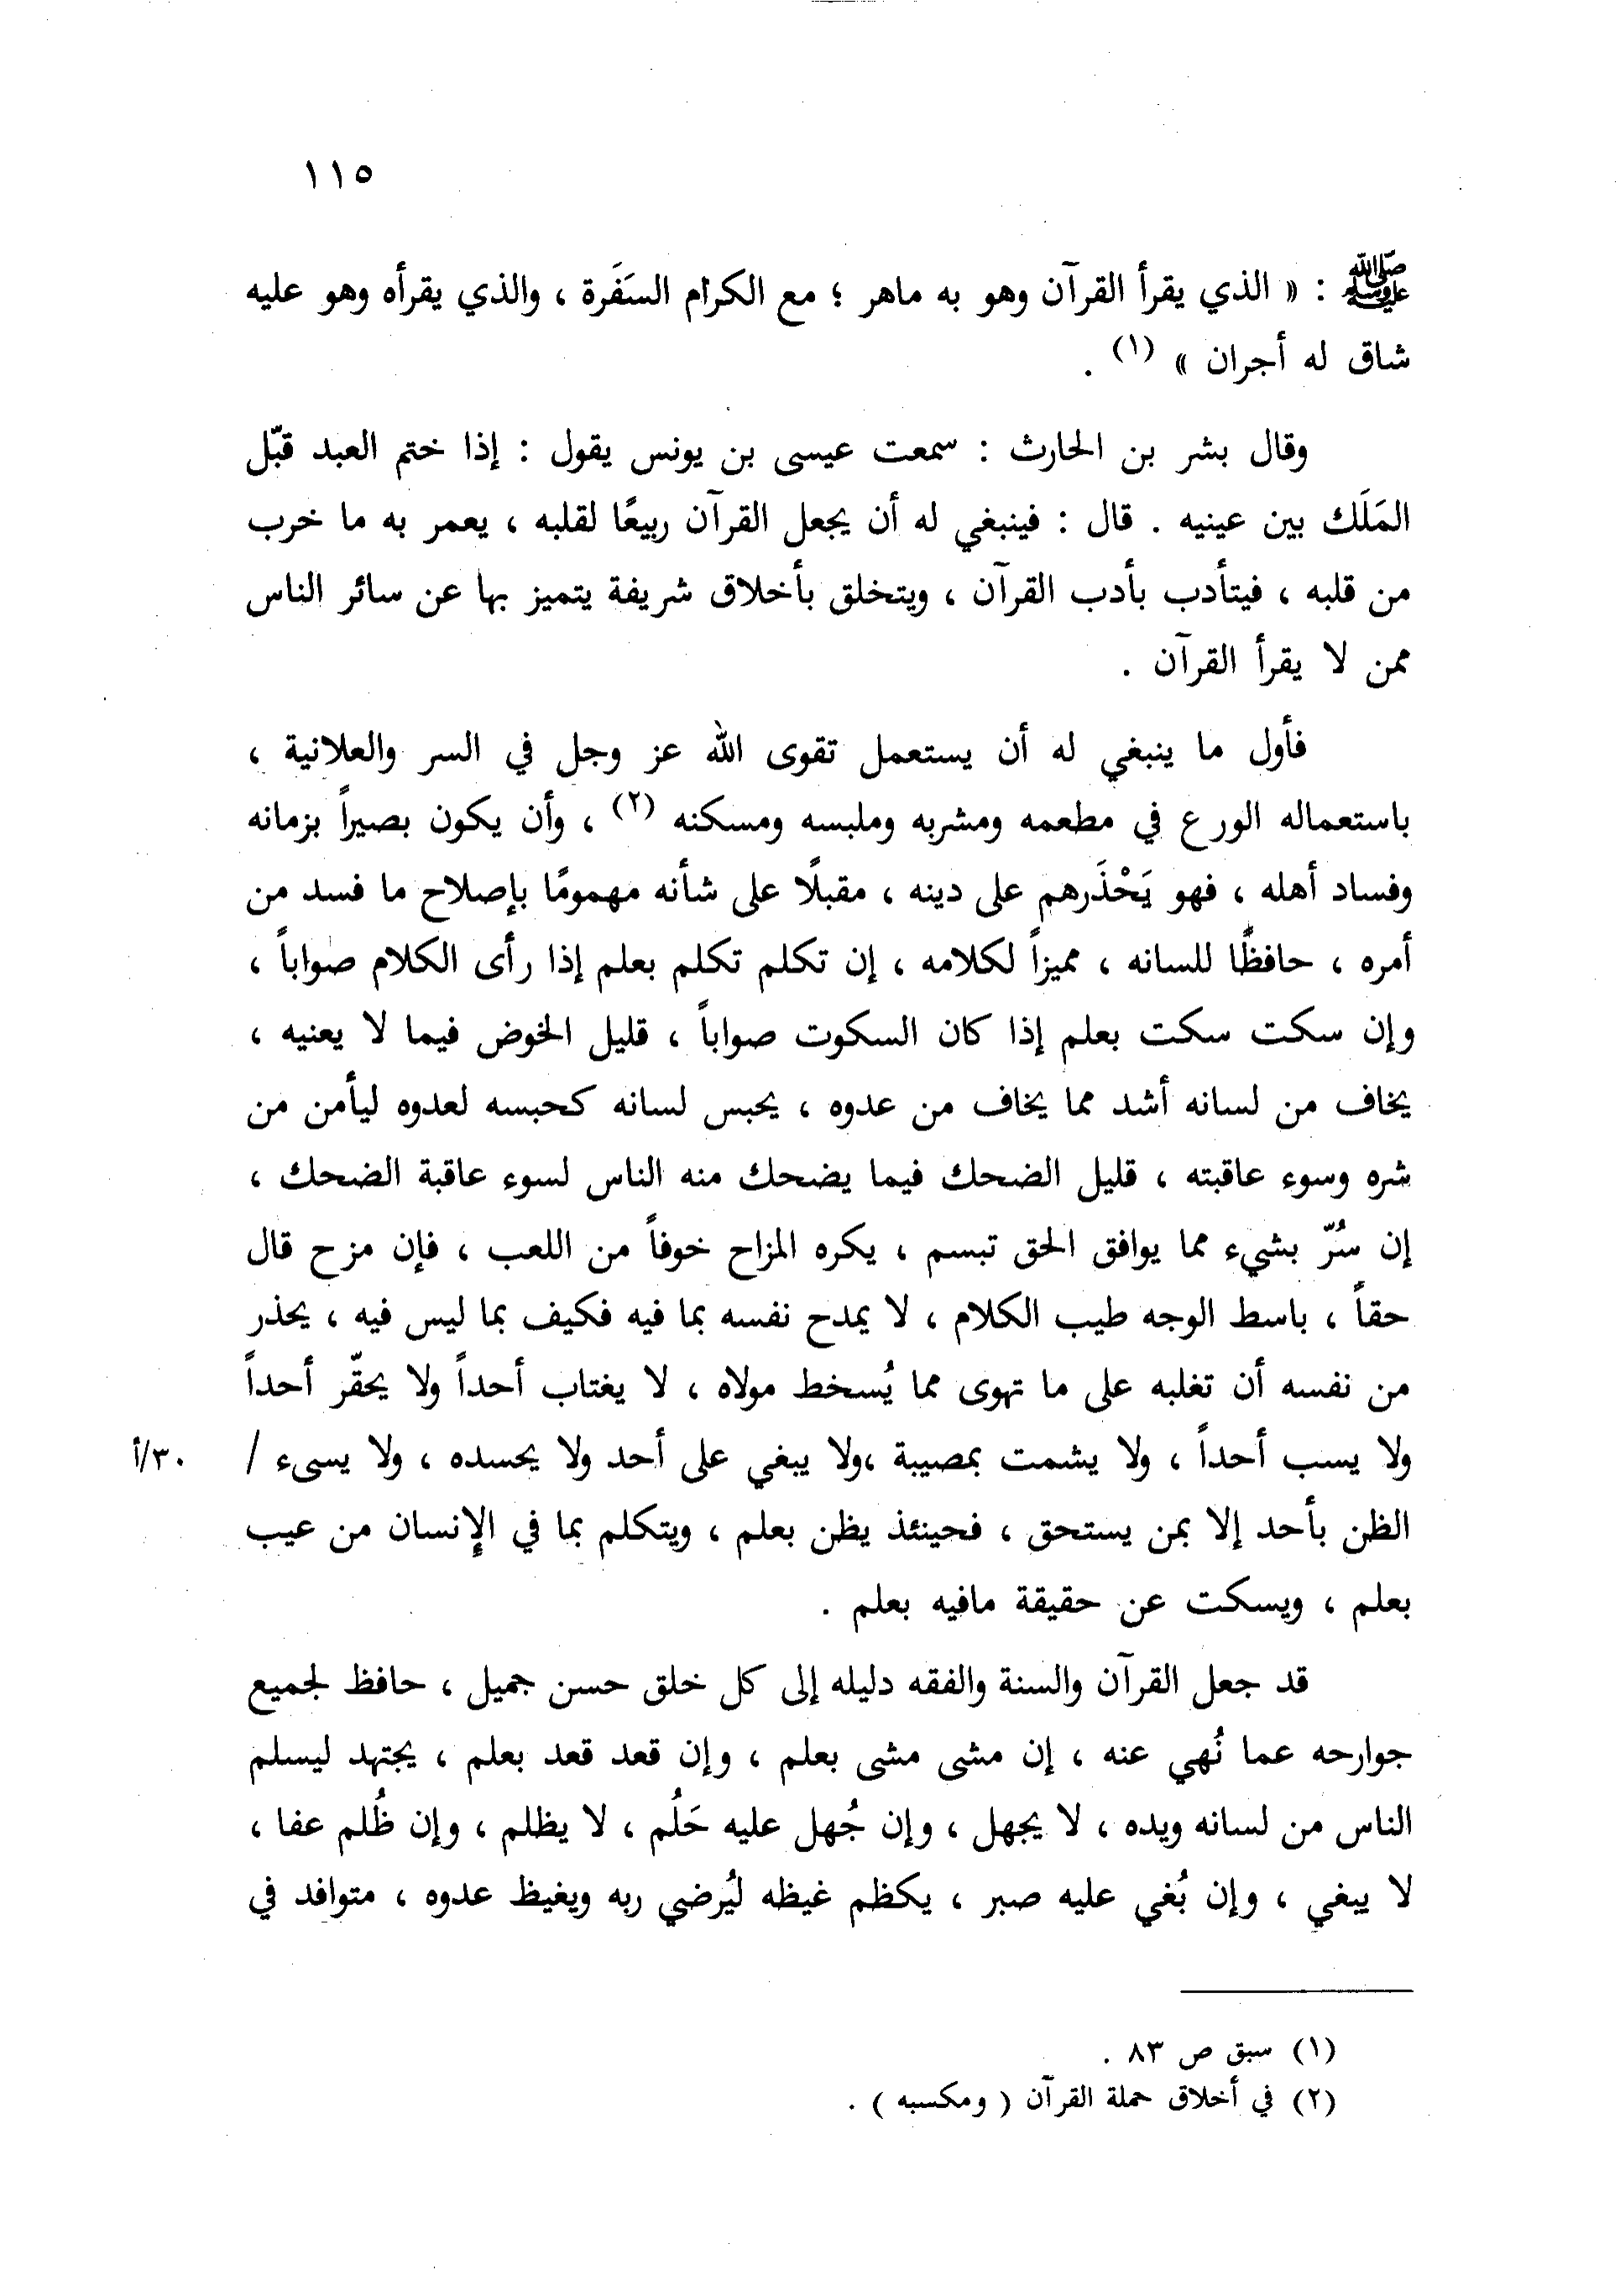 ١١٥
ﷺ : « الذي يقرأ القرآن وهو به ماهر ؛ مع الكرام السَفَرة ، والذي يقرأه وهو عليه
شاق له أجران » (١) .
وقال بشر بن الحارث : سمعت عيسى بن يونس يقول : إذا ختم العبد قبّل
المَلَك بين عينيه . قال : فينبغي له أن يجعل القرآن ربيعًا لقلبه ، يعمر به ما خرب
من قلبه ، فيتأدب بأدب القرآن ، ويتخلق بأخلاق شريفة يتميز بها عن سائر الناس
ممن لا يقرأ القرآن .
فأول ما ينبغي له أن يستعمل تقوى الله عز وجل في السر والعلانية ،
باستعماله الورع في مطعمه ومشربه وملبسه ومسكنه (٢) ، وأن يكون بصيراً بزمانه
وفساد أهله ، فهو يَحْذَرهم على دينه ، مقبلًا على شأنه مهمومًا بإصلاح ما فسد من
أمره ، حافظًا للسانه ، مميزاً لكلامه ، إن تكلم تكلم بعلم إذا رأى الكلام صواباً ،
وإن سكت سكت بعلم إذا كان السكوت صواباً ، قليل الخوض فيما لا يعنيه ،
يخاف من لسانه أشد مما يخاف من عدوه ، يحبس لسانه كحبسه لعدوه ليأمن من
شره وسوء عاقبته ، قليل الضحك فيما يضحك منه الناس لسوء عاقبة الضحك ،
إن سُرّ بشيء مما يوافق الحق تبسم ، يكره المزاح خوفاً من اللعب ، فإن مزح قال
حقاً ، باسط الوجه طيب الكلام ، لا يمدح نفسه بما فيه فكيف بما ليس فيه ، يحذر
من نفسه أن تغلبه على ما تهوى مما يُسخط مولاه ، لا يغتاب أحداً ولا يحقّر أحداً
ولا يسب أحداً ، ولا يشمت بمصيبة ،ولا يبغي على أحد ولا يحسده ، ولا يسىء / ٣٠/أ
الظن بأحد إلا بمن يستحق ، فحينئذ يظن بعلم ، ويتكلم بما في الإنسان من عيب
بعلم ، ويسكت عن حقيقة مافيه بعلم .
قد جعل القرآن والسنة والفقه دليله إلى كل خلق حسن جميل ، حافظ لجميع
جوارحه عما نُهي عنه ، إن مشى مشى بعلم ، وإن قعد قعد بعلم ، يجتهد ليسلم
الناس من لسانه ويده ، لا يجهل ، وإن جُهل عليه حَلُم ، لا يظلم ، وإن ظُلم عفا ،
لا يبغي ، وإن بُغي عليه صبر ، يكظم غيظه ليُرضي ربه ويغيظ عدوه ، متوافد في
(١) سبق ص ٨٣ .
(٢) في أخلاق حملة القرآن ( ومكسبه ) .